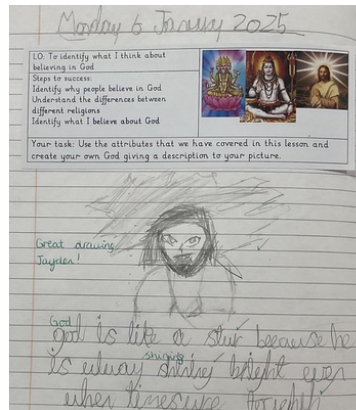 Monday 6 January 2025
LO: To identify what I think about
believing in God
Steps to success:
Identify why people believe in God
Understand the differences between
different religions
Identify what I believe about God
Your task: Use the attributes that we have covered in this lesson and
create your own God giving a description to your picture.
Great drawing
Jayden!
God
god is like a star because he
shining
is alway shining bright even
when times are